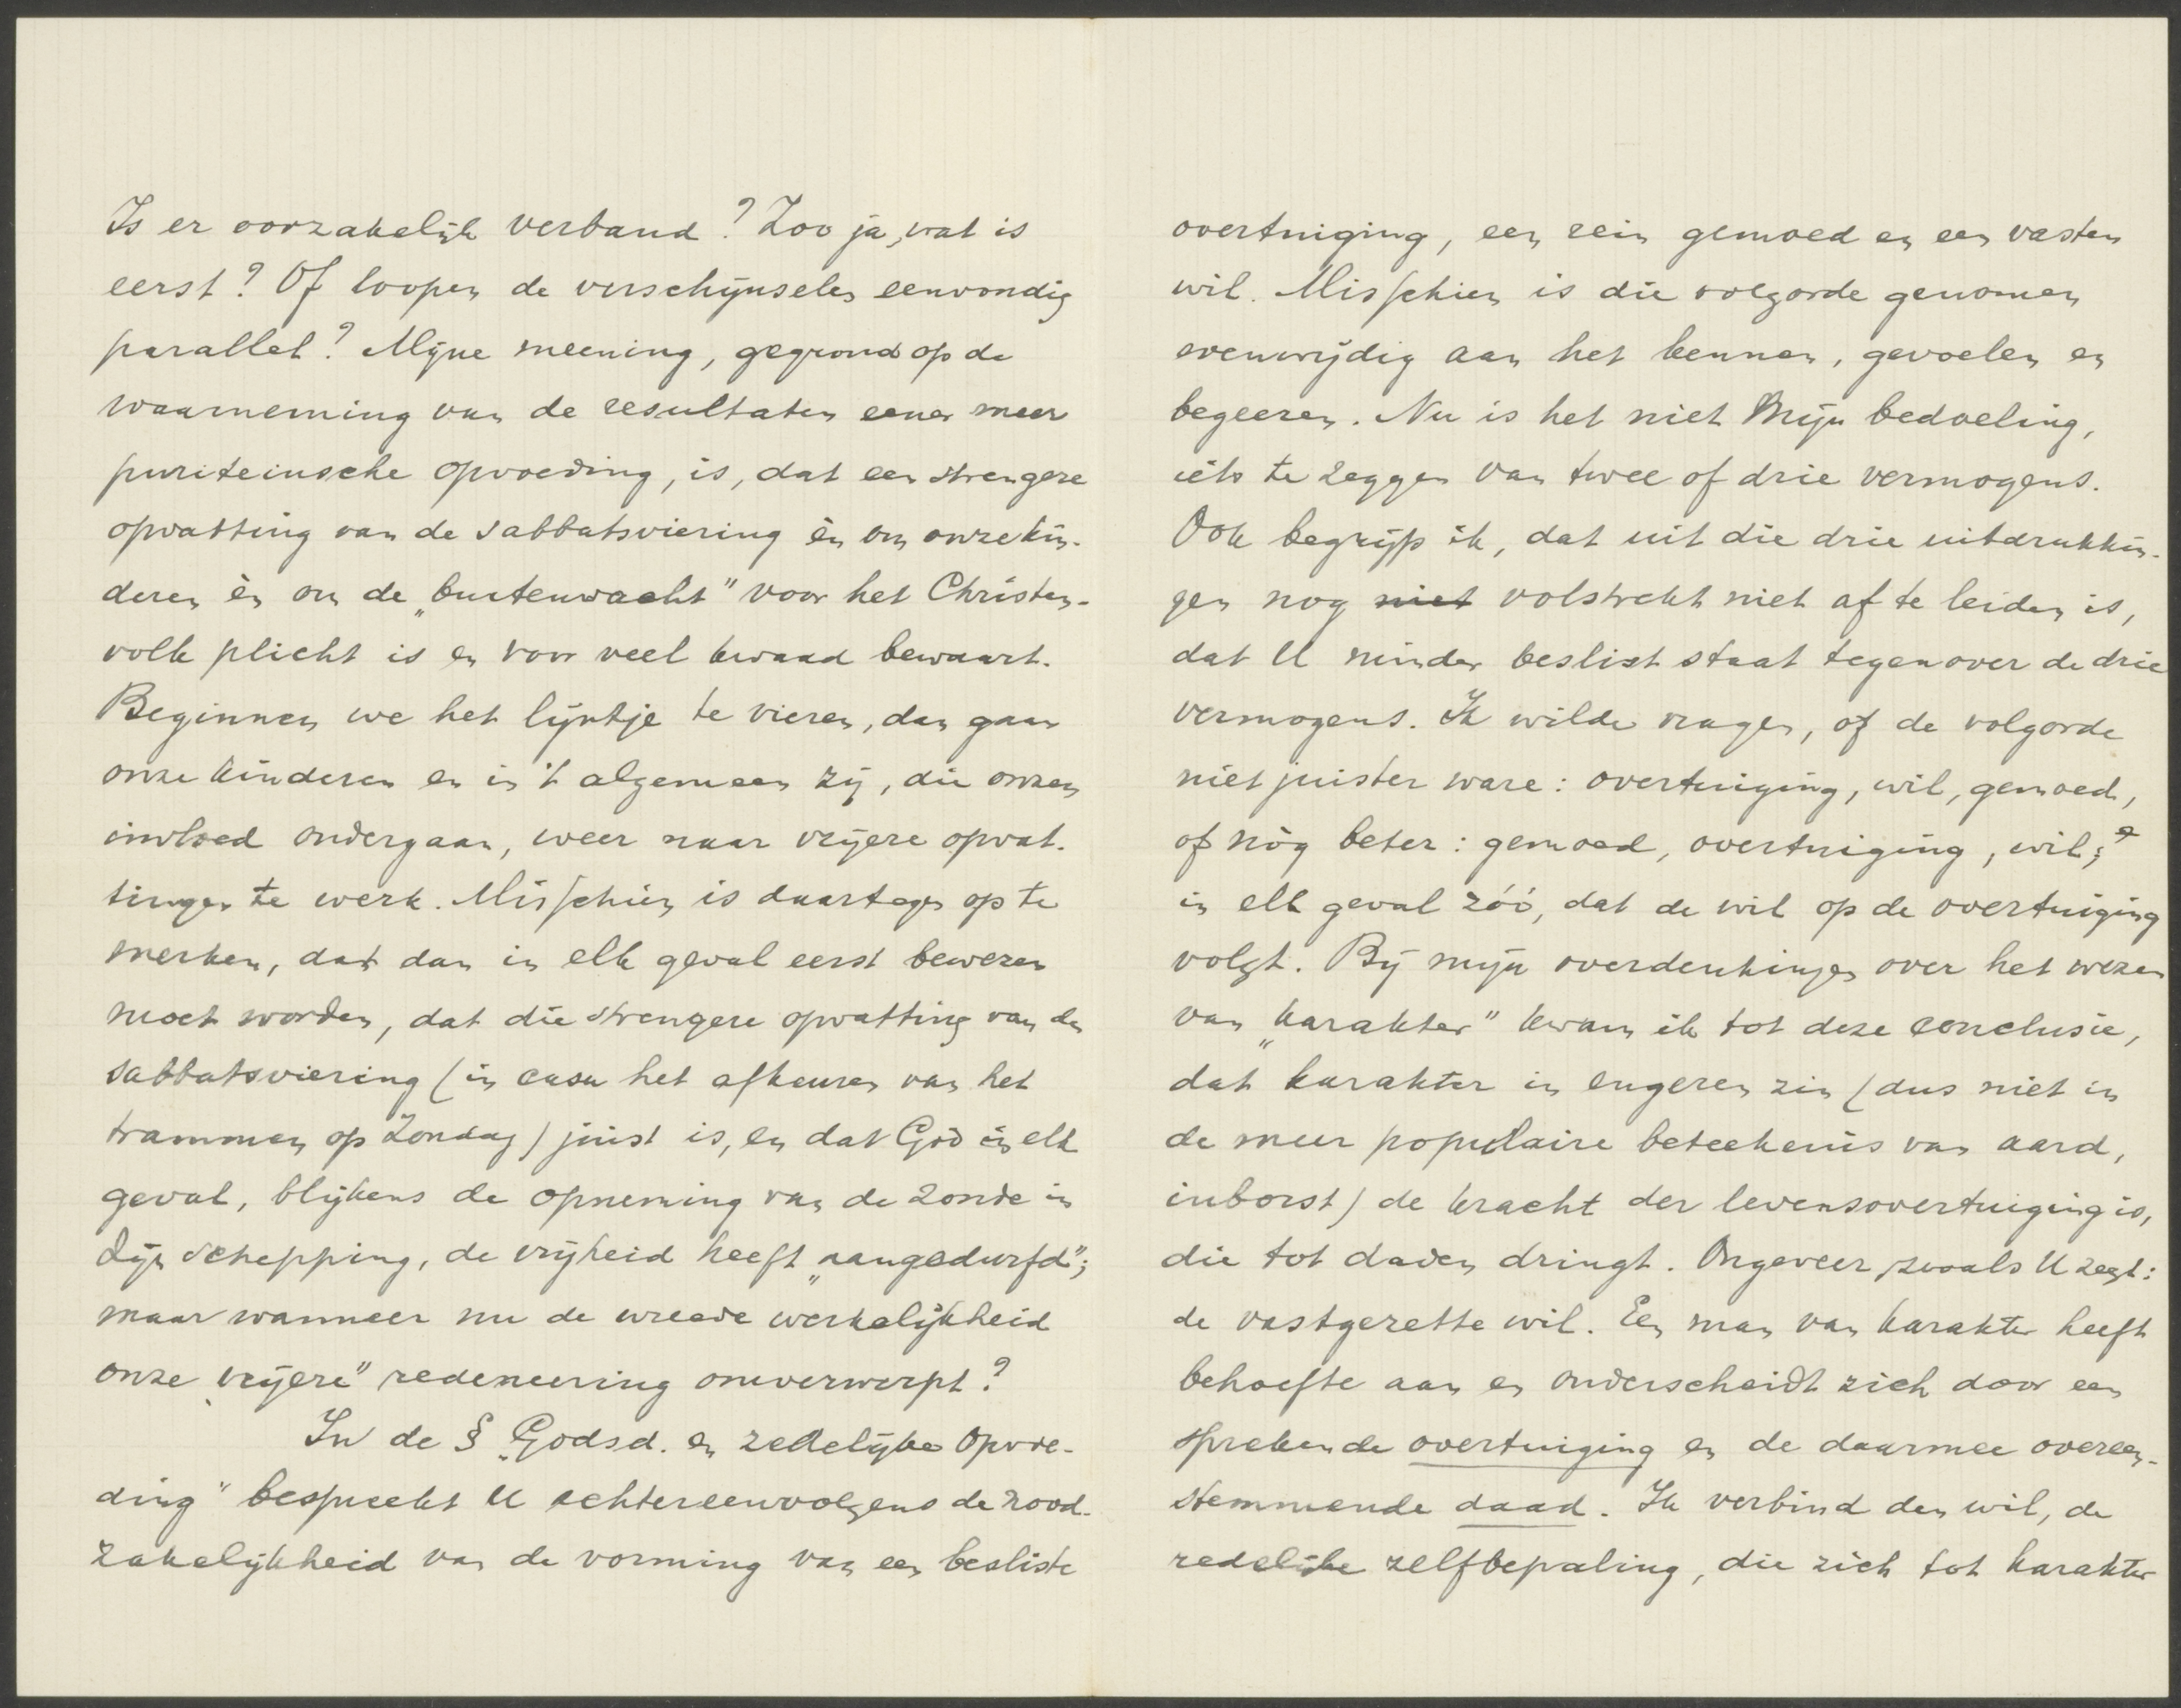 Is er oorzakelijk verband? Zoo ja, wat is
eerst? Of loopen de verschijnselen eenvoudig
parallel? Mijne meening, gegrond op de
waarneming van de resultaten eener meer
puriteinsche opvoeding, is, dat een strengere
opvatting van de sabbatsviering èn om onze kin-
deren èn om de „buitenwacht" voor het Christen-
volk plicht is en voor veel kwaad bewaart.
Beginnen we het lijntje te vieren, dan gaan
onze kinderen en in 't algemeen zij, die onzen
invloed ondergaan, weer naar vrijere opvat-
tingen te werk. Misschien is daartegen op te
merken, dat dan in elk geval eerst bewezen
moet worden, dat die strengere opvatting van de
sabbatsviering (in casu het afkeuren van het
trammen op Zondag) juist is, en dat God in elk
geval, blijkens de opneming van de zonde in
Zijn schepping, de vrijheid heeft „aangedurfd";
maar wanneer nu de wreede werkelijkheid
onze „vrijere" redeneering omverwerpt?
In de § „Godsd. en zedelijke opvoe-
ding" bespreekt U achtereenvolgens de nood-
zakelijkheid van de vorming van een besliste
overtuiging, een rein gemoed en een vasten
wil. Misschien is die volgorde genomen
evenwijdig aan het kennen, gevoelen en
begeeren. Nu is het niet mijn bedoeling,
iets te zeggen van twee of drie vermogens.
Ook begrijp ik, dat uit die drie uitdrukkin-
gen nog niet volstrekt niet af te leiden is,
dat U minder beslist staat tegenover de drie
vermogens. Ik wilde vragen, of de volgorde
niet juister ware: overtuiging, wil, gemoed,
of nòg beter: gemoed, overtuiging, wil;
in elk geval zóó, dat de wil op de overtuiging
volgt. Bij mijn overdenkingen over het wezen
van „karakter" kwam ik tot deze conclusie,
dat karakter in engeren zin (dus niet in
de meer populaire beteekenis van aard,
inborst) de kracht der levensovertuiging is,
die tot daden dringt. Ongeveer zooals U zegt:
de vastgezette wil. Een man van karakter heeft
behoefte aan en onderscheidt zich door een
sprekende overtuiging en de daarmee overeen-
stemmende daad. Ik verbind den wil, de
redelijke zelfbepaling, die zich tot karakter